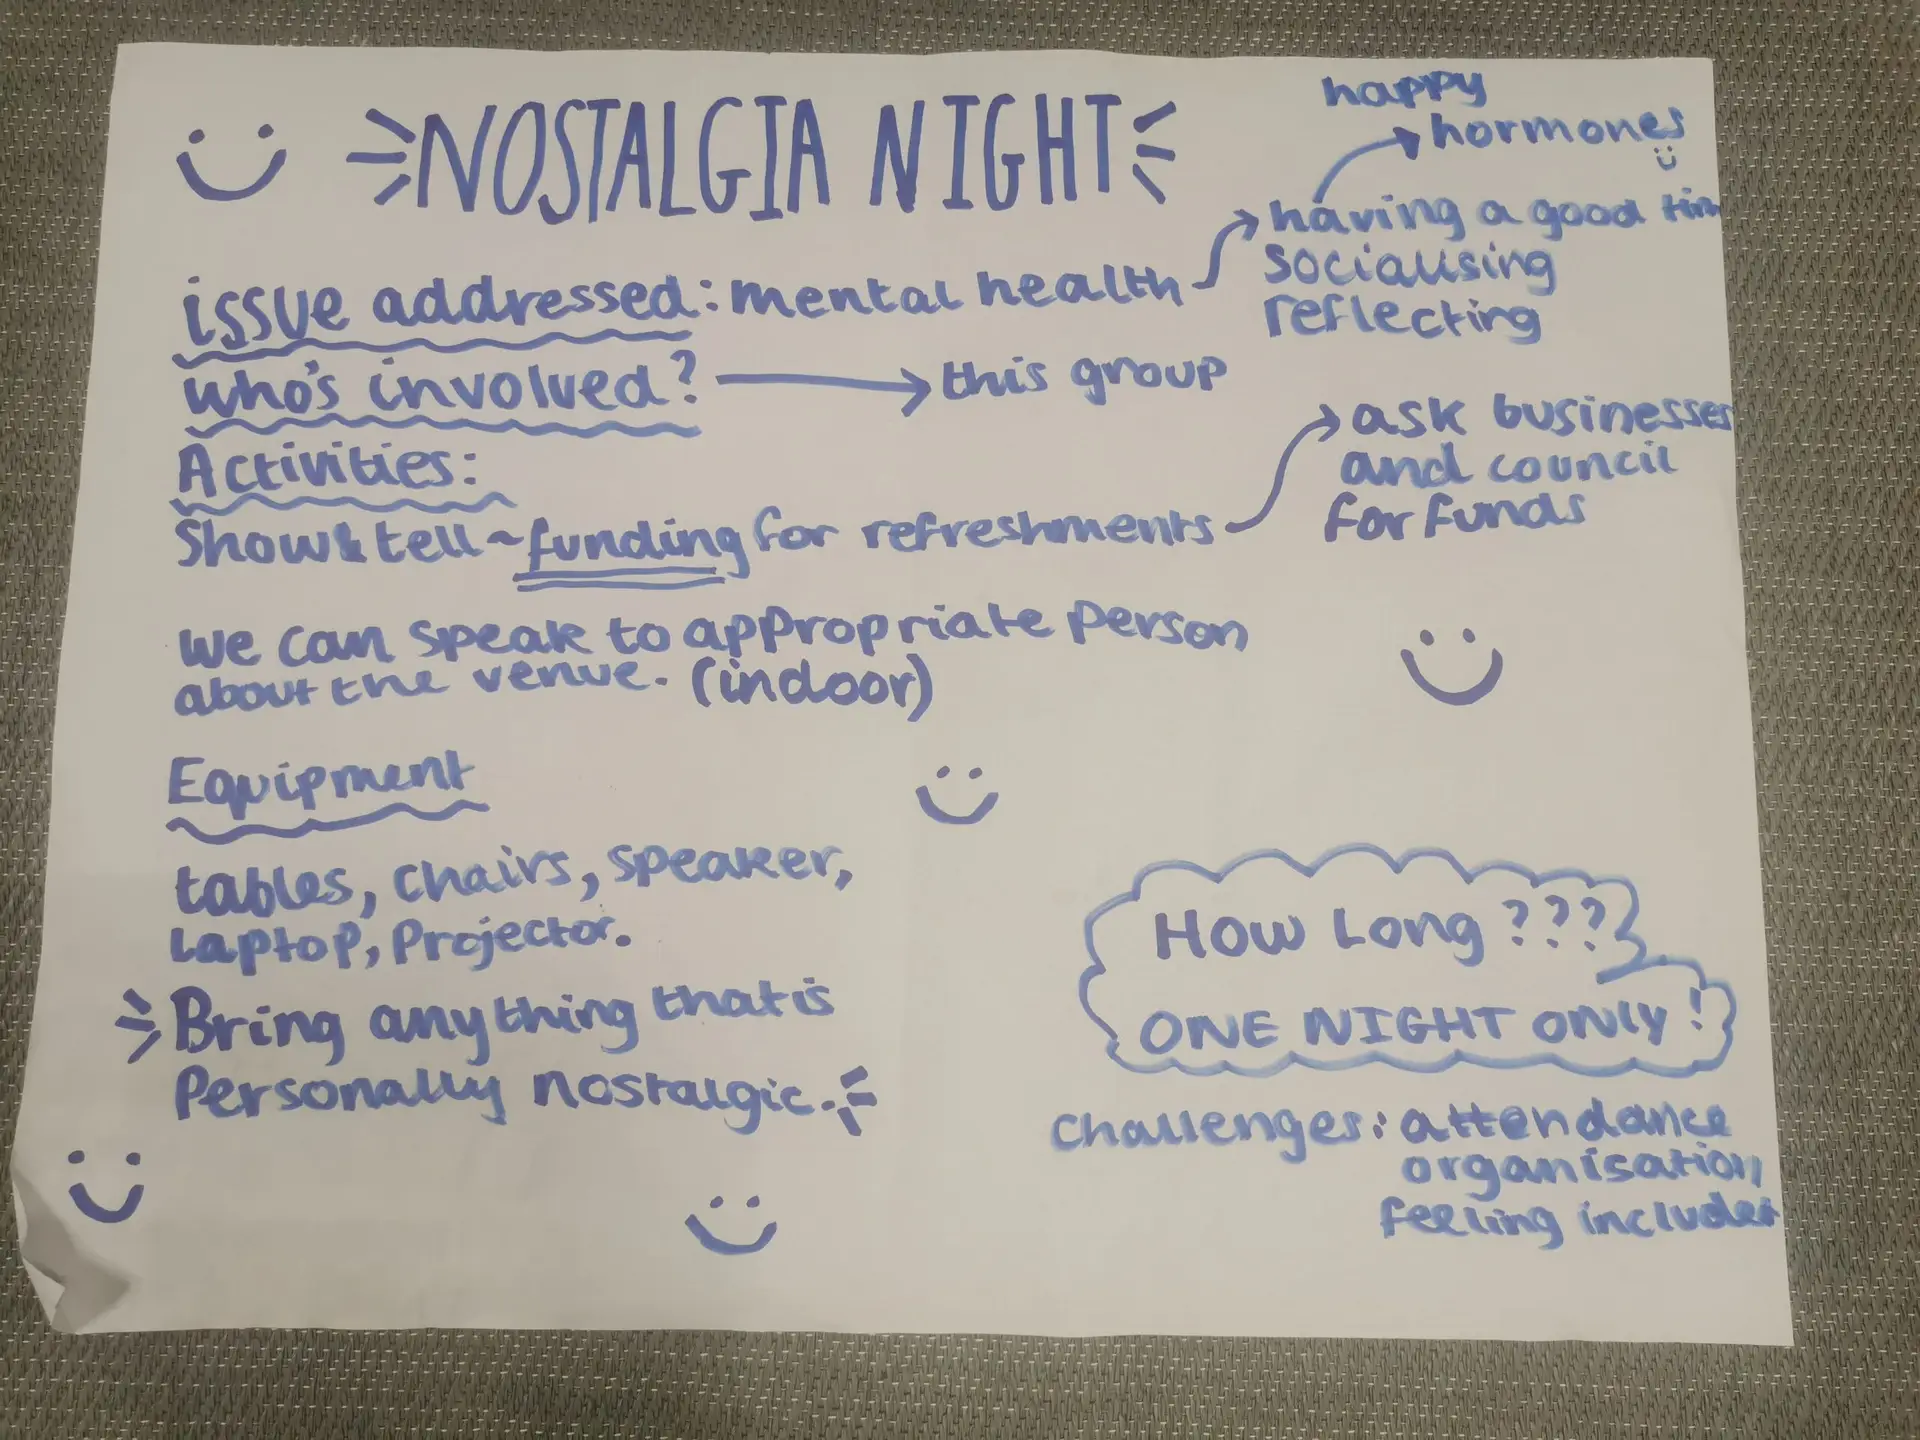 NOSTALGIA NIGHT
happy
hormones
issue addressed: mental health
having a good tim
socialising
reflecting
who's involved? this group
Activities:
Show & tell ~ funding for refreshments
ask businesses
and council
for funds
We can speak to appropriate person
about the venue. (indoor)
Equipment
tables, chairs, speaker,
Laptop, Projector.
Bring anything that is
Personally nostalgic.
How Long ???
ONE NIGHT ONLY!
Challenges: attendance
organisation
feeling included